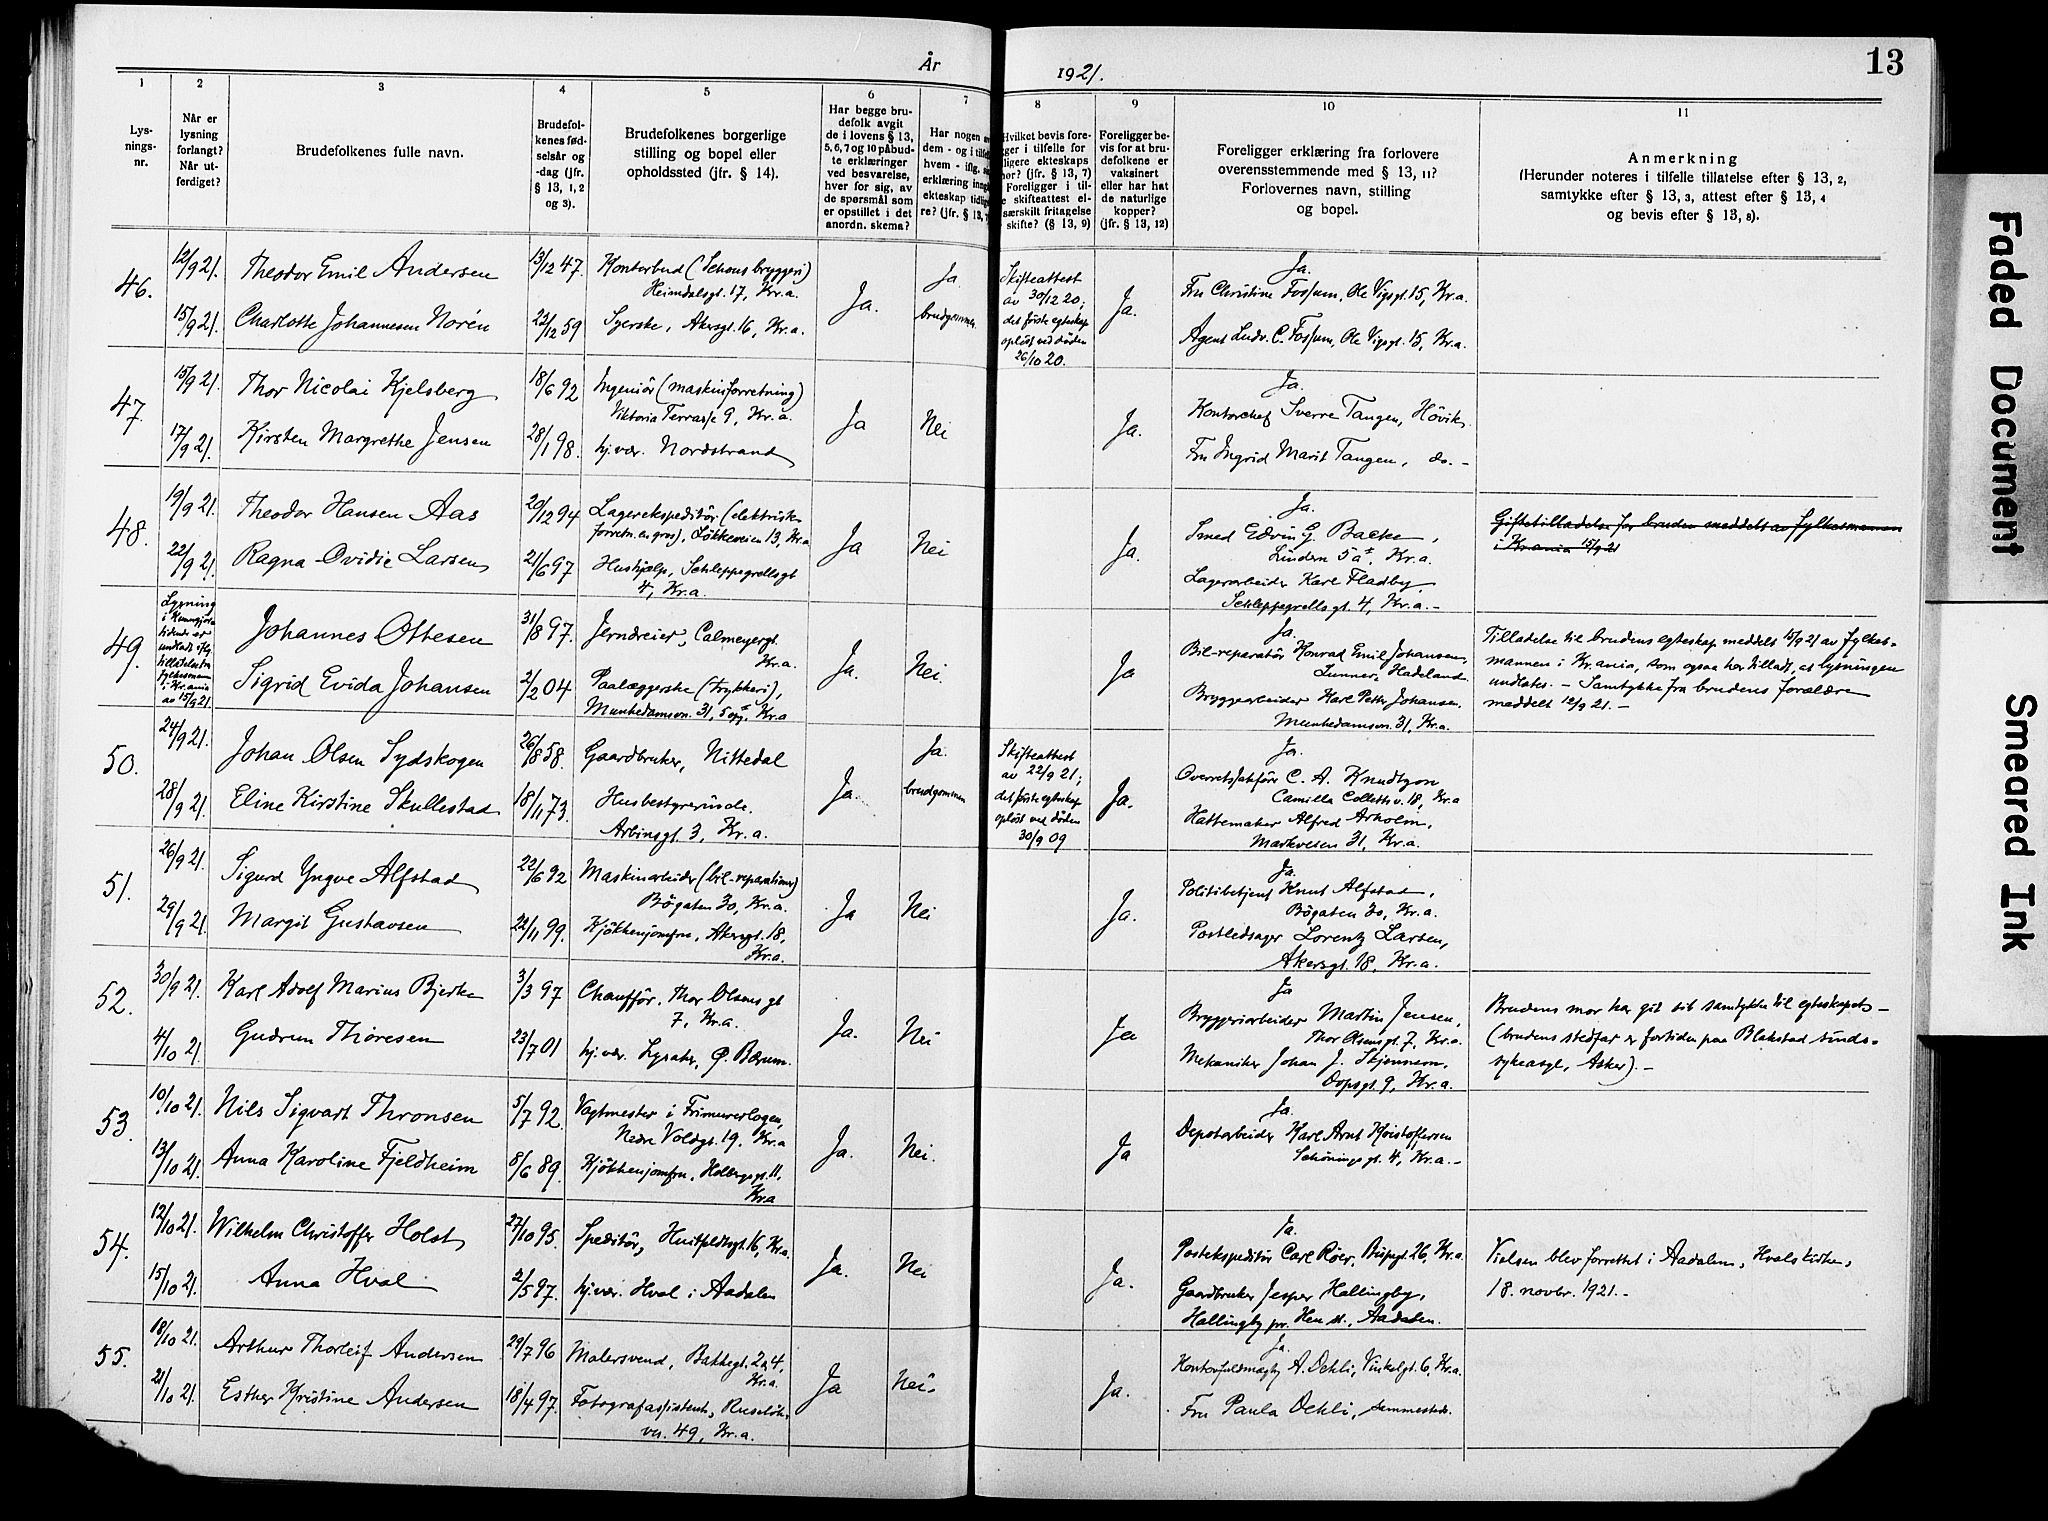 År
1921.
13
1
2
3
4
5
6
7
8
9
10
11
Lys-
nings-
nr.
Når er
lysning
forlangt?
Når ut-
ferdiget?
Brudefolkenes fulle navn.
Brudefol-
kenes fød-
selsår og
-dag (jfr.
§ 13, 1, 2
og 3).
Brudefolkenes borgerlige
stilling og bopel eller
opholdssted (jfr. § 14).
Har begge bru-
defolk avgit
de i lovens § 13,
5, 6, 7 og 10 påbud-
te erklæringer
ved besvarelse,
hver for sig, av
de spørsmål som
er opstillet i det
anordn. skema?
Har nogen av
dem - og i tilfelle
hvem - iflg.
erklæring inngått
ekteskap tidlige-
re? (jfr. § 13, 7
Hvilket bevis fore-
gger i tilfelle for
ligere ekteskaps
hør? (jfr. § 13, 7)
Foreligger i til-
e skifteattest el-
særskilt fritagelse
skifte? (§ 13, 9)
Foreligger be-
vis for at bru-
defolkene er
vaksinert
eller har hat
de naturlige
kopper?
(jfr. § 13, 12)
Foreligger erklæring fra forlovere
overensstemmende med § 13, 11?
Forlovernes navn, stilling
og bopel.
Anmerkning
(Herunder noteres i tilfelle tillatelse efter § 13, 2,
samtykke efter § 13, 3, attest efter § 13, 4
og bevis efter § 13, 8).
46.
12/9 21.
Theodor Emil Andersen
13/12 47.
Kontorbud (Schous bryggeri)
Heimdalsgt. 17, Kr.a.
15/9 21.
Charlotte Johannesen Norén
22/12 59
Syerske, Akersgt. 16, Kr.a.
Ja.
Ja.
brudgommen
Skifteattest
av 30/12 20;
det første egteskap
opløst ved døden
26/10 20.
Ja.
Ja.
Fru Christine Fossum, Ole Vigsgt. 15, Kr.a.
Agent Ludv. C. Fossum, Ole Vigsgt. 15, Kr.a.
47.
15/9 21.
Thor Nicolai Kjelsberg
18/6 92
Ingeniör (maskinforretning)
Viktoria Terrasse 9, Kr.a.
17/9 21.
Kirsten Margrethe Jensen
28/1 98.
hj.vær. Nordstrand
Ja
Nei
Ja.
Ja.
Kontorchef Sverre Tangen, Hövik
Fru Ingrid Marit Tangen, do. -
48.
19/9 21.
Theodor Hansen Aas
20/12 94
Lagerekspeditör (elektrisk
forretn. en gros), Løkkeveien 13, Kr.a
22/9 21.
Ragna Ovidie Larsen
21/6 97
Hushjælp, Schleppegrellsgt
4, Kr.a.
Ja
Nei
Ja.
Ja.
Smed Edvin G. Backe,
Lindern 5a, Kr.a.
Lagerarbeider Karl Fladby,
Schleppegrellsgt. 4, Kr.a. -
Giftetilladelse for bruden meddelt av fylkesmannen
i Kr.ania 15/9 21
49.
Lysning
i Kunngjørs
tidende er
undlatt iflg.
tillatelse fra
fylkesmann
i Kr.ania
av 15/9 21.
Johannes Ottesen
31/8 97.
Jerndreier, Calmeyergt.
Kr.a.
Sigrid Evida Johansen
2/2 04
Paalæggerske (trykkeri),
Munkedamsvn. 31, 5 opg. Kr.a
Ja.
Nei.
Ja
Ja.
Bil-reparatör Konrad Emil Johansen,
Lunner, Hadeland.
Bryggearbeider Karl Petter Johansen.
Munkedamsvn. 31, Kr.a.
Tilladelse til brudens egteskap meddelt 15/9 21 av fylkes-
mannen i Kr.ania, som ogsaa har tilladt, at lysningen
undlates. - Samtykke fra brudens forældre
meddelt 12/9 21. -
50.
24/9 21.
Johan Olsen Sydskogen
26/8 58.
Gaardbruker, Nittedal
28/9 21.
Eline Kirstine Skullestad
18/11 73.
Husbestyrerinde.
Arbinsgt. 3, Kr.a.
Ja.
Ja.
brudgommen
Skifteattest
av 22/9 21;
det første egteskap
opløst ved døden
30/9 09
Ja.
Ja.
Overretssakfører C. A. Knudtzon
Camilla Colletts v. 18, Kr.a
Hattemaker Alfred Arholm,
Markveien 31, Kr.a.
51.
26/9 21.
Sigurd Yngve Alfstad
22/6 92
Maskinarbeider (bil-reparationer)
Bögaten 30, Kr.a.
29/9 21.
Margit Gustavsen
22/11 99.
Kjökkenjomfru, Akersgt. 18,
Kr.a.
Ja
Nei
Ja.
Ja.
Politibetjent Knut Alfstad,
Bögaten 30, Kr.a.
Postledsager Lorentz Larsen,
Akersgt. 18, Kr.a.
52.
30/9 21.
Karl Adolf Marius Bjerke
3/3 97
Chaufför, Thor Olsens gt
7, Kr.a.
4/10 21.
Gudrun Thoresen
23/7 01
hj.vær. Lysaker, Ø. Bærum.
Ja.
Nei
Ja
Ja
Bryggeriarbeider Martin Jensen,
Thor Olsensgt. 7, Kr.a.
Mekaniker Johan J. Skjennem,
Dopsgt. 9, Kr.a.
Brudens mor har git sit samtykke til egteskapet -
(brudens stedfar er fortiden paa Blakstad sinds-
sykeasyl, Asker). -
53.
10/10 21.
Nils Sigvart Thronsen
5/7 92.
Vagtmester i Frimurerlogen,
Nedre Voldgt. 19. Kr.a
13/10 21.
Anna Karoline Fjeldheim
8/6 89.
Kjökkenjomfru, Holbergsgt. 11.
Kr.a
Ja.
Nei.
Ja
Ja.
Depotarbeider Karl Arnt Kristoffersen
Schöningsgt. 4, Kr.a. -
54.
12/10 21.
Wilhelm Christoffer Holst
27/10 95.
Speditör, Huitfeldtsgt. 16, Kr.a.
15/10 21.
Anna Hval
2/5 97.
hj.vær. Hval i Aadalen
Ja.
Nei
Ja.
Ja.
Postekspeditör Carl Röer, Bispegt. 26, Kr.a.
Gaardbruker Jesper Hallingby,
Hallingby pr. Hen st., Aadalen.
Vielsen blev forrettet i Aadalen, Hvals kirke,
18. novbr. 1921. -
55.
18/10 21.
Arthur Thorleif Andersen
29/7 96
Malersvend, Bakkegt. 24,
Kr.a.
21/10 21.
Esther Kristine Andersen
18/4 97.
Fotografassistent, Ruselök
vn. 49, Kr.a.
Ja
Nei.
Ja.
Ja.
Kontorfuldmægtig A. Dehli, Vinkelgt. 6, Kr.a.
Fru Paula Dehli, sammesteds.
Faded Document
Smeared Ink